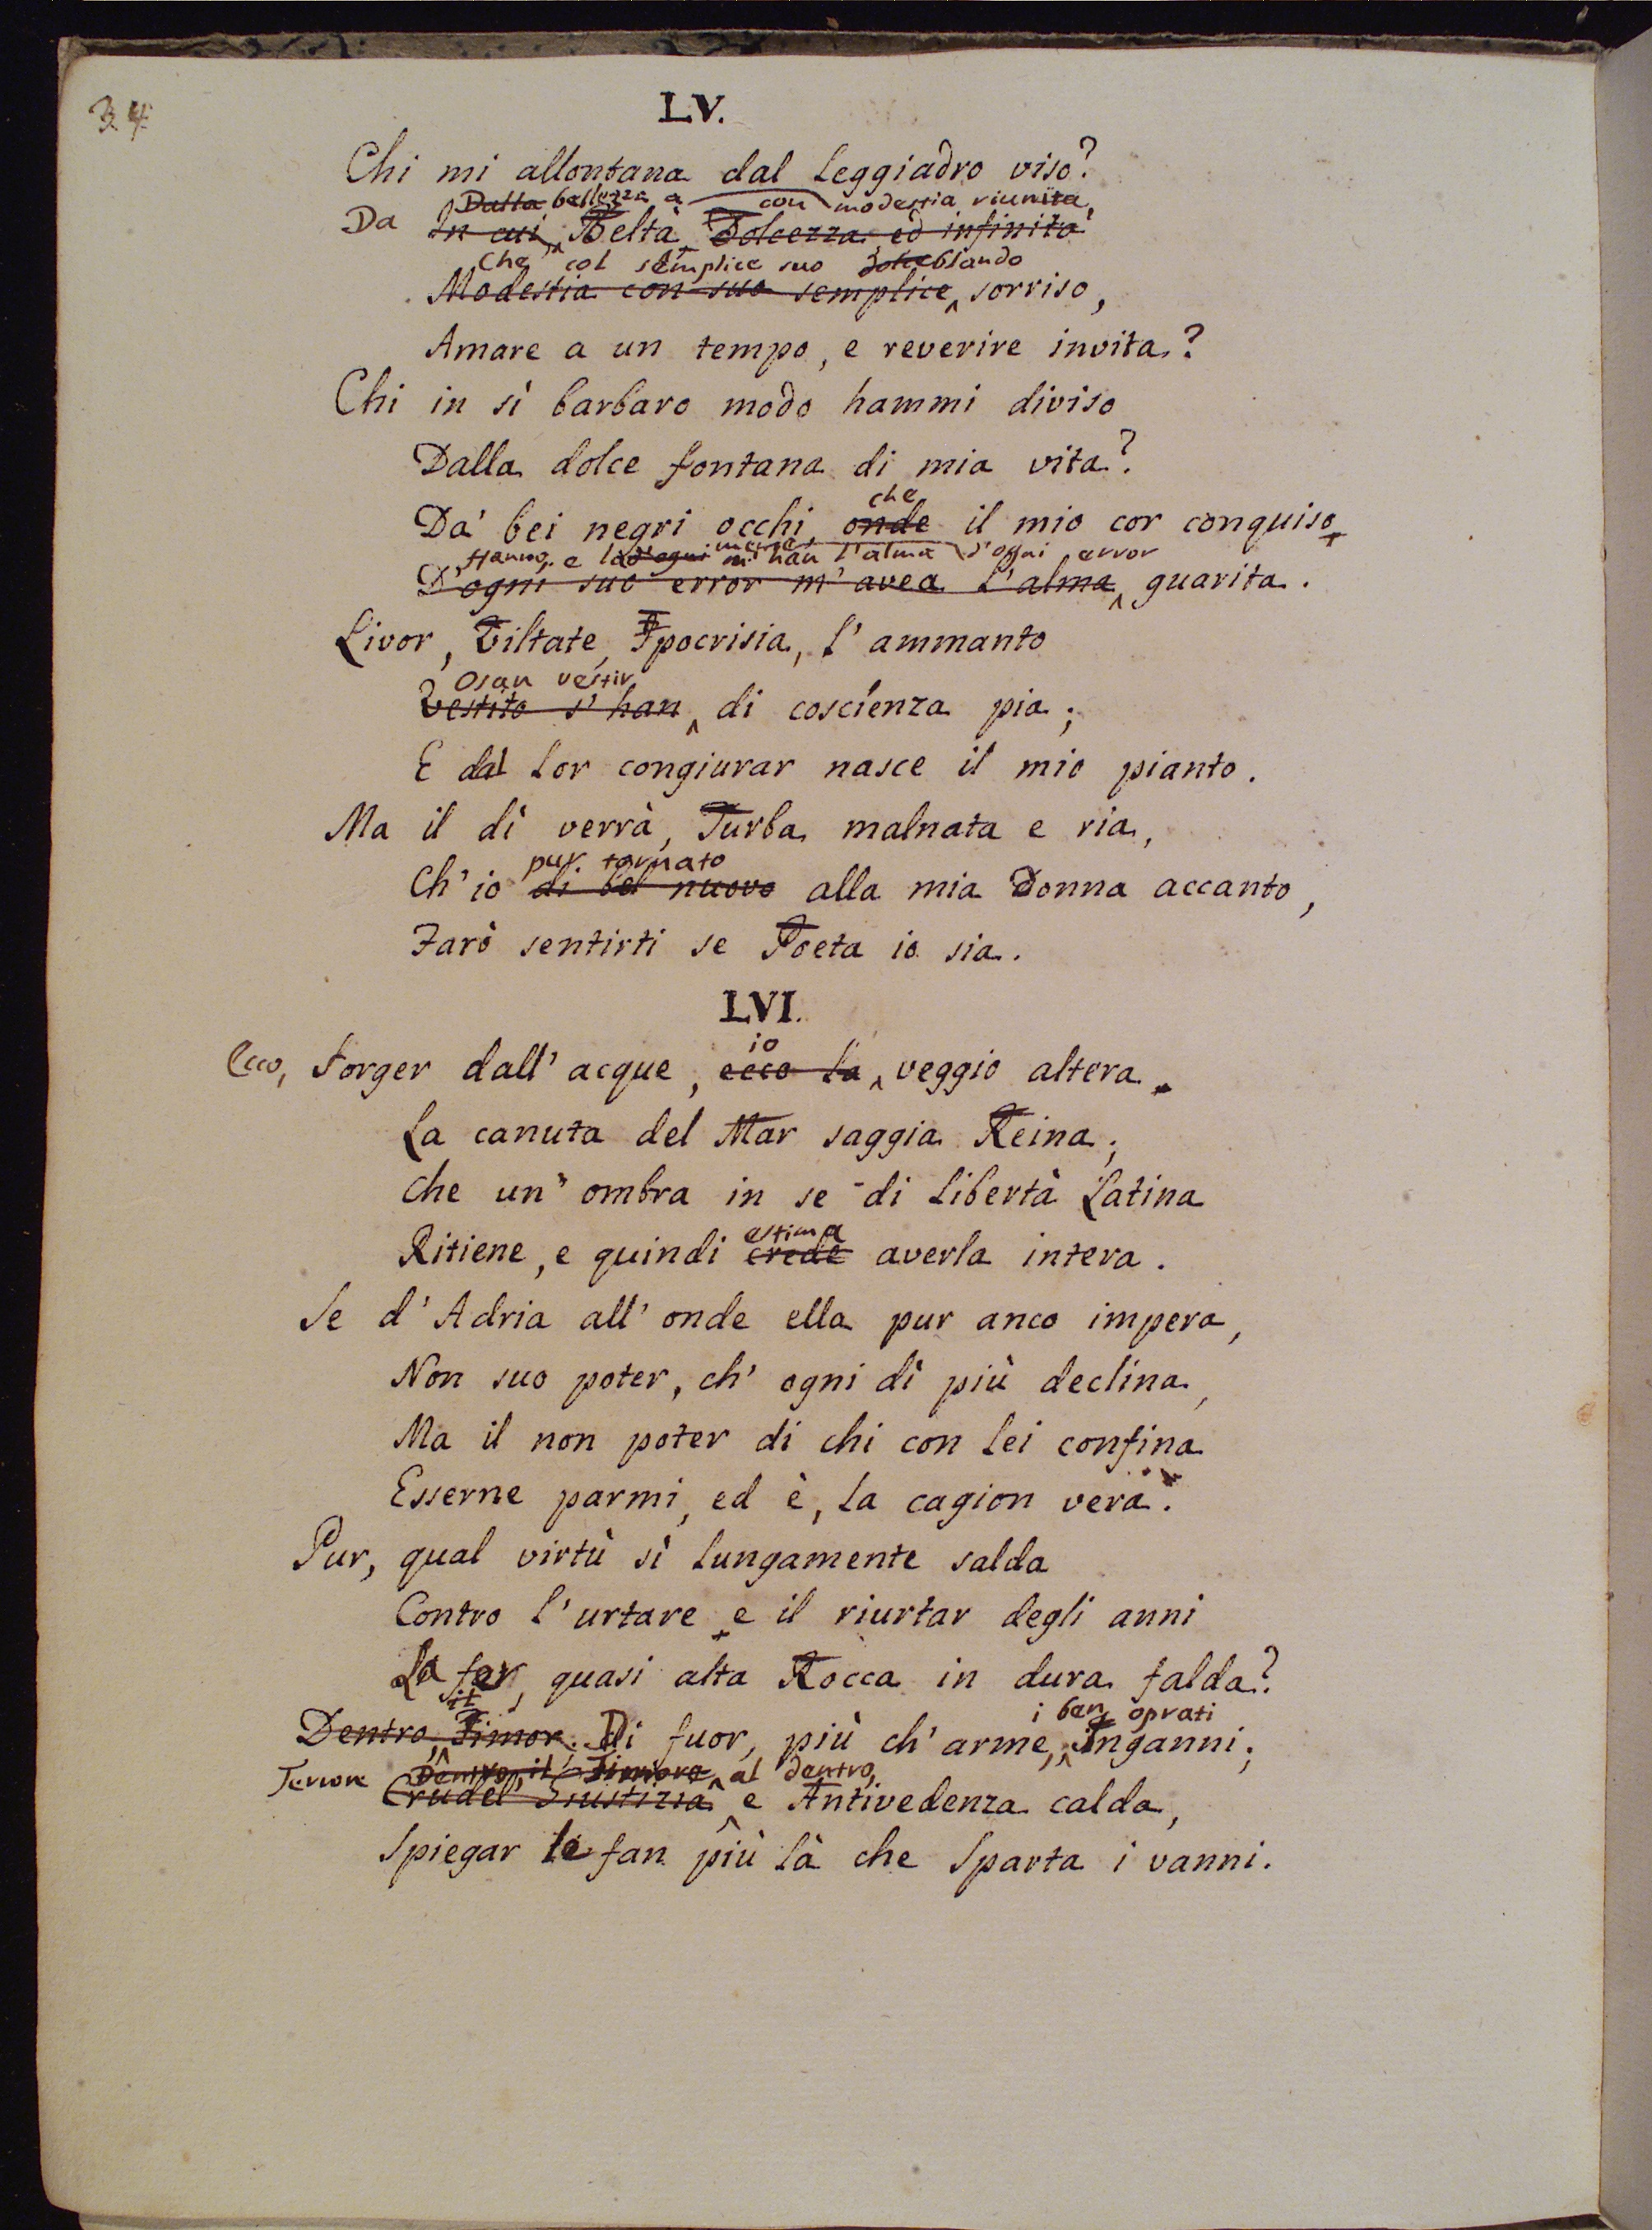 34
LV.
Chi mi allontana dal leggiadro viso?
Dalla bellezza a con modestia riunita,
Da In cui Beltà Dolcezza ed infinita
Che col semplice suo dolce blando
Modestia con suo semplice sorriso,
Amare a un tempo, e reverire invita?
Chi in sì barbaro modo hammi diviso
Dalla dolce fontana di mia vita?
che
Da' bei negri occhi, onde il mio cor conquiso
Hanno, e la d'ogni mente, m'han l'alma d'ogni error
D'ogni suo error m'avea l'alma guarita.
Livor, Viltate, Ipocrisia, l'ammanto
Osan vestir
Vestito s'han di coscienza pia;
E dal lor congiurar nasce il mio pianto.
Ma il dì verrà, Turba malnata e ria,
pur tornato
Ch'io di bel nuovo alla mia Donna accanto,
Farò sentirti se Poeta io sia.
LVI.
io
Ecco, Sorger dall'acque, ecco la veggio altera
La canuta del Mar saggia Reina,
Che un'ombra in se di libertà Latina
estima
Ritiene, e quindi crede averla intera.
Se d'Adria all'onde ella pur anco impera,
Non suo poter, ch'ogni dì più declina,
Ma il non poter di chi con lei confina
Esserne parmi, ed è, la cagion vera.
Pur, qual virtù sì lungamente salda
Contro l'urtare e il riurtar degli anni
La fer, quasi alta Rocca in dura falda?
il i ben oprati
Dentro, Timor. Di fuor, più ch'arme, Inganni;
Terrore Dentro, il Timore al dentro,
Crudel Giustizia e Antivedenza calda,
Spiegar le fan più là che Sparta i vanni.